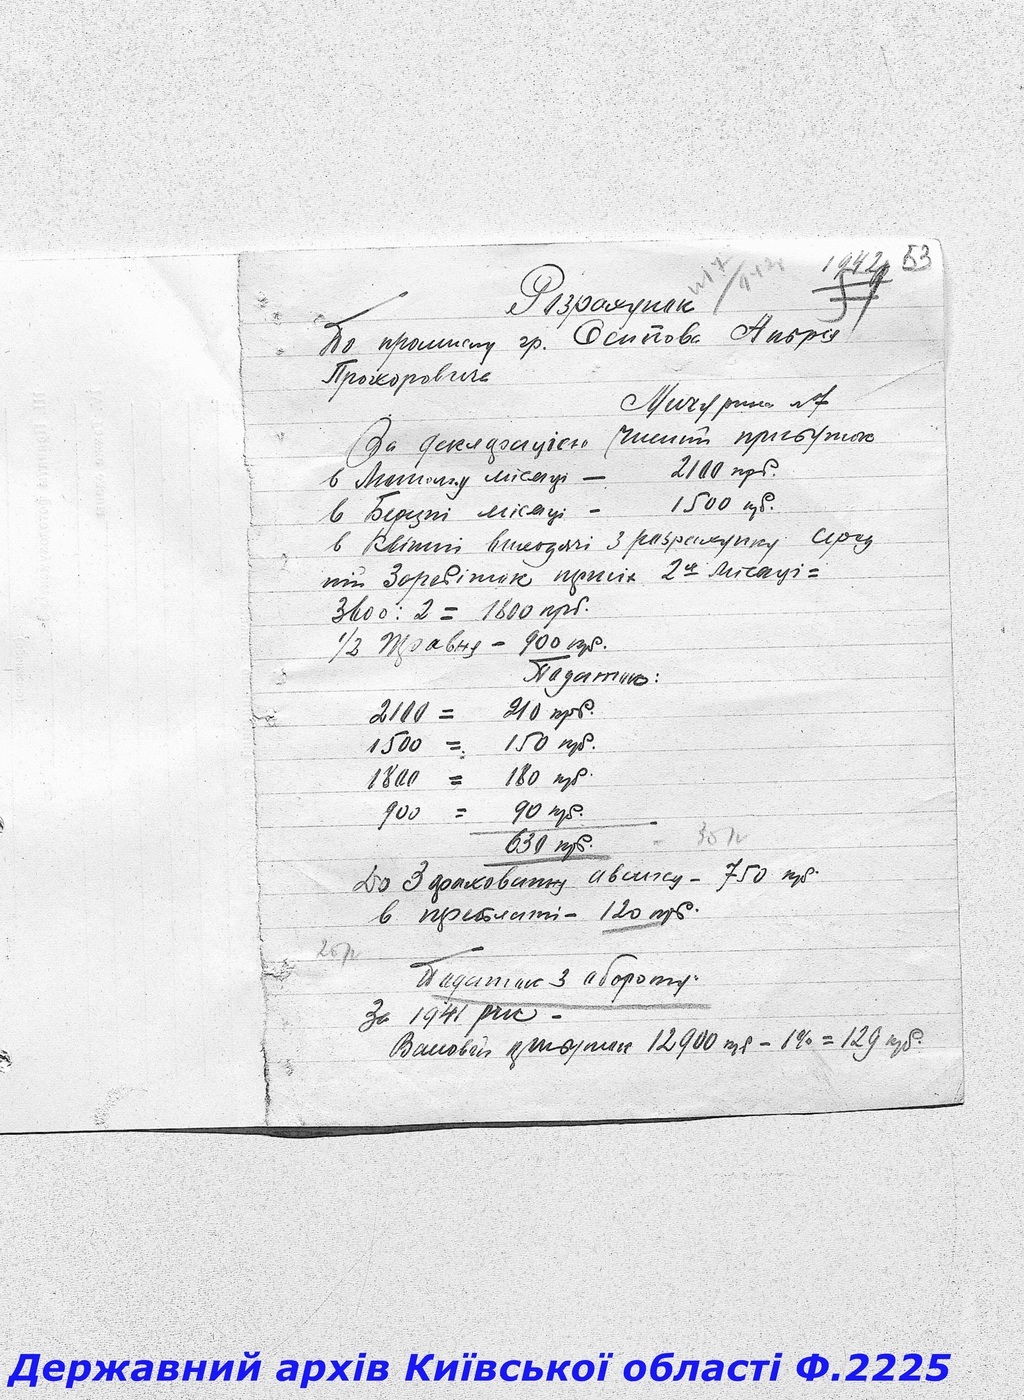 1942 53
Розрахунок
По промислу гр. Осипова Андрія
Прохоровича
Мичурина №7
За декларацією чистий прибуток
в Лютому місяці — 2100 крб.
в Березні місяці - 1500 крб.
в Квітні виходячі з розрахунку серед
ній Заробіток 2х місяці =
3600 : 2 = 1800 крб.
1/2 Травня - 900 крб.
Податок:
2100 = 210 крб.
1500 = 150 крб.
1800 = 180 крб.
900 = 90 крб.
630 крб.
30 р
До Зарахованню авансу - 750 крб.
в преплаті - 120 крб.
20 р
Податок з обороту:
За 1941 рік -
Валовий прибуток 12900 крб - 1% = 129 крб.
Державний архів Київської області Ф.2225